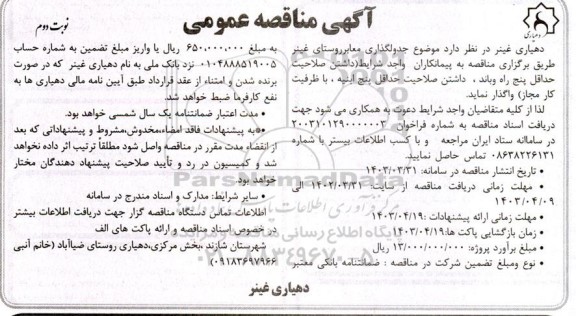 آگهی مناقصه عمومی
نوبت دوم
دهیاری
دهیاری غینر در نظر دارد موضوع جدولگذاری معابرروستای غینر
طریق برگزاری مناقصه به پیمانکاران واجد شرایط(داشتن صلاحیت
حداقل پنج راه وباند ، داشتن صلاحیت حداقل پنج ابنیه ، با ظرفیت
کار مجاز) واگذار نماید.
لذا از کلیه متقاضیان واجد شرایط دعوت به همکاری می شود جهت
دریافت اسناد مناقصه به شماره فراخوان ۲۰۰۳۱۰۱۲۹۰۰۰۰۰۰۳
در سامااانه ستاد ایران مراجعه و با کسب اطلاعات بیستر با شماره
۰۸۶۳۸۲۲۶۱۳۱ تماس حاصل نمایید.
• تاریخ انتشار مناقصه در سامانه: ۱۴۰۳/۰۳/۳۱
• مهلت زمانی دریافت مناقصه از سایت: ۱۴۰۲/۰۳/۳۱ الی
۱۴۰۳/۰۴/۰۹
• مهلت زمانی ارائه پیشنهادات :۱۴۰۳/۰۴/۱۹
• زمان بازگشایی پاکت ها:۱۴۰۳/۰۴/۱۹
• مبلغ برآورد پروژه: ۱۳/۰۰۰/۰۰۰/۰۰۰ ریال
• نوع ومبلغ تضمین شرکت در مناقصه : ضمانتنامه بانکی معتبر
به مبلغ ۶۵۰،۰۰۰،۰۰۰ ریال یا واریز مبلغ تضمین به شماره حساب
۰۱۰۴۸۸۸۵۱۹۰۰۵ نزد بانک ملی به نام دهیاری غینر که در صورت
برنده شدن و امتناء از عقد قرارداد طبق آیین نامه مالی دهیاری ها به
نفع کارفرما ضبط خواهد شد.
• مدت اعتبار ضمانتنامه یک سال شمسی خواهد بود.
• به پیشنهادات فاقد امضاء،مخدوش،مشروط و پیشنهاداتی که بعد
از انقضاء مدت مقرر در مناقصه واصل شود مطلقاً ترتیب اثر داده نخواهد
شد و کمیسیون در رد و تأیید صلاحیت پیشنهاد دهندگان مختار
خواهد بود.
• سایر شرایط: مدارک و اسناد مندرج در سامانه
اطلاعات تماس دستگاه مناقصه گزار جهت دریافت اطلاعات بیشتر
در خصوص اسناد مناقصه و ارائه پاکت های الف
شهرستان شازند،بخش مرکزی،دهیاری روستای ضیاآباد (خانم آنبی
۰۹۱۸۳۶۹۷۹۶۶)
دهیاری غینر
ParsNamadData